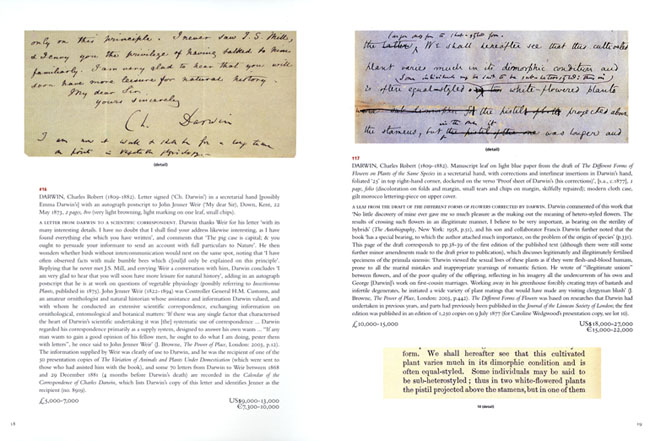 only on this principle. I never saw J. S. Mill,
& I envy you the privilege of having talked to him
familiarly. I am very glad to hear that you will
soon have more leisure for natural history
My dear Sir
yours sincerely
Ch. Darwin
(detail)
DARWIN, Charles Robert (1809-1882). Letter signed ('Ch. Darwin') in a secretarial hand [possibly
Emma Darwin's] with an autograph postscript to John Jenner Weir ('My dear Sir), Down, Kent, 22
May 1873, 2 pages, 8vo (very light browning, light marking on one leaf, small clips).
A LETTER FROM DARWIN TO A SCIENTIFIC CORRESPONDENT. Darwin thanks Weir for his letter 'with its
many interesting details. I have no doubt that I shall find your addenda likewise interesting, as I have
found everything else which you have written', and comments that 'The pig case is capital, & you
ought to persuade your informant to send an account with full particulars to Nature'. He then
wonders whether birds without intercommunication would nest on the same spot, noting that 'I have
often observed facts with male humble bees which c[oul]d only be explained on this principle'.
Replying that he never met J.S. Mill, and envying Weir a conversation with him, Darwin concludes 'I
am very glad to hear that you will soon have more leisure for natural history', adding in an autograph
postscript that he is at work on questions of vegetable physiology (possibly referring to Insectivorous
Plants, published in 1875). John Jenner Weir (1822-1894) was Controller General H.M. Customs, and
an amateur ornithologist and natural historian whose assistance and information Darwin valued, and
with whom he conducted an extensive scientific correspondence, exchanging information on
ornithological, entomological and botanical matters: 'If there was any single factor that characterised
the heart of Darwin's scientific undertaking it was [the] systematic use of correspondence ... Darwin
regarded his correspondence primarily as a supply system, designed to answer his own wants ... "If any
man wants to gain a good opinion of his fellow men, he ought to do what I am doing, pester them
with letters", he once said to John Jenner Weir' (J. Browne, The Power of Place, London: 2003, p.11).
The information supplied by Weir was clearly of use to Darwin, and he was the recipient of one of the
50 presentation copies of The Variation of Animals and Plants Under Domestication (which were sent to
those who had assisted him with the book), and some 70 letters from Darwin to Weir between 1868
and 29 December 1881 (4 months before Darwin's death) are recorded in the Calendar of the
Correspondence of Charles Darwin, which lists Darwin's copy of this letter and identifies Jenner as the
recipient (no. 8919).
£5,000-7,000
US$9,000-13,000
€7,300-10,000
18
We shall hereafter see that this cultivated
plant varies much in its dimorphic condition and
is often equal-styled
white-flowered plants
the pistil projected above
the stamens, but
was longer and
(detail)
117
DARWIN, Charles Robert (1809-1882). Manuscript leaf on light blue paper from the draft of The Different Forms of
Flowers on Plants of the Same Species in a secretarial hand, with corrections and interlinear insertions in Darwin's hand,
foliated '25' in top right-hand corner, docketed on the verso 'Proof sheet of Darwin's (his corrections)', [s.a., c.1877], 1
page, folio (discoloration on folds and margin, small tears and chips on margin, skilfully repaired); modern cloth case,
gilt morocco lettering-piece on upper cover.
A LEAF FROM THE DRAFT OF THE DIFFERENT FORMS OF FLOWERS CORRECTED BY DARWIN. Darwin commented of this work that
'No little discovery of mine ever gave me so much pleasure as the making out the meaning of hetero-styled flowers. The
results of crossing such flowers in an illegitimate manner, I believe to be very important, as bearing on the sterility of
hybrids' (The Autobiography, New York: 1958, p.51), and his son and collaborator Francis Darwin further noted that the
book 'has a special bearing, to which the author attached much importance, on the problem of the origin of species' (p.331).
This page of the draft corresponds to pp.58-59 of the first edition of the published text (although there were still some
further minor amendments made to the draft prior to publication), which discusses legitimately and illegitimately fertilised
specimens of the primula sinensis. 'Darwin viewed the sexual lives of these plants as if they were flesh-and-blood humans,
prone to all the marital mistakes and inappropriate yearnings of romantic fiction. He wrote of "illegitimate unions"
between flowers, and of the poor quality of the offspring, reflecting in his imagery all the undercurrents of his own and
George [Darwin]'s work on first-cousin marriages. Working away in his greenhouse forcibly creating trays of bastards and
infertile degenerates, he initiated a wide variety of plant matings that would have made any visiting clergyman blush' (J.
Browne, The Power of Place, London: 2003, p.442). The Different Forms of Flowers was based on researches that Darwin had
undertaken in previous years, and parts had previously been published in the Journal of the Linnean Society of London; the first
edition was published in an edition of 1,250 copies on 9 July 1877 (for Caroline Wedgwood's presentation copy, see lot 10).
£10,000-15,000
US$18,000-27,000
€15,000-22,000
form. We shall hereafter see that this cultivated
plant varies much in its dimorphic condition and is
often equal-styled. Some individuals may be said to
be sub-heterostyled; thus in two white-flowered plants
the pistil projected above the stamens, but in one of them
10 (detail)
19